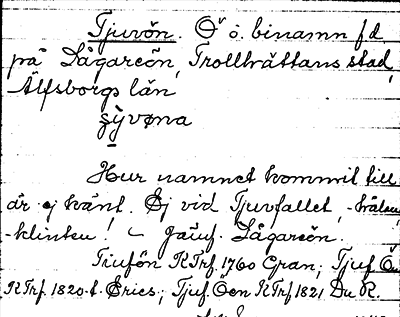 Tjuvön. Ö o. binamn f d
på Sågareön, Trollhättans stad,
Älfsborgs län
Hur namnet kommit till
är ej känt. Ej vid Tjuvfallet, -hålan,
-klinten! Jämf. Sågareön.
Tiufön KTrf. 1760 Gran; Tjuf Ön
KTrf. 1820-t. Erics; Tjuf Öen KTrf 1821 Du R.